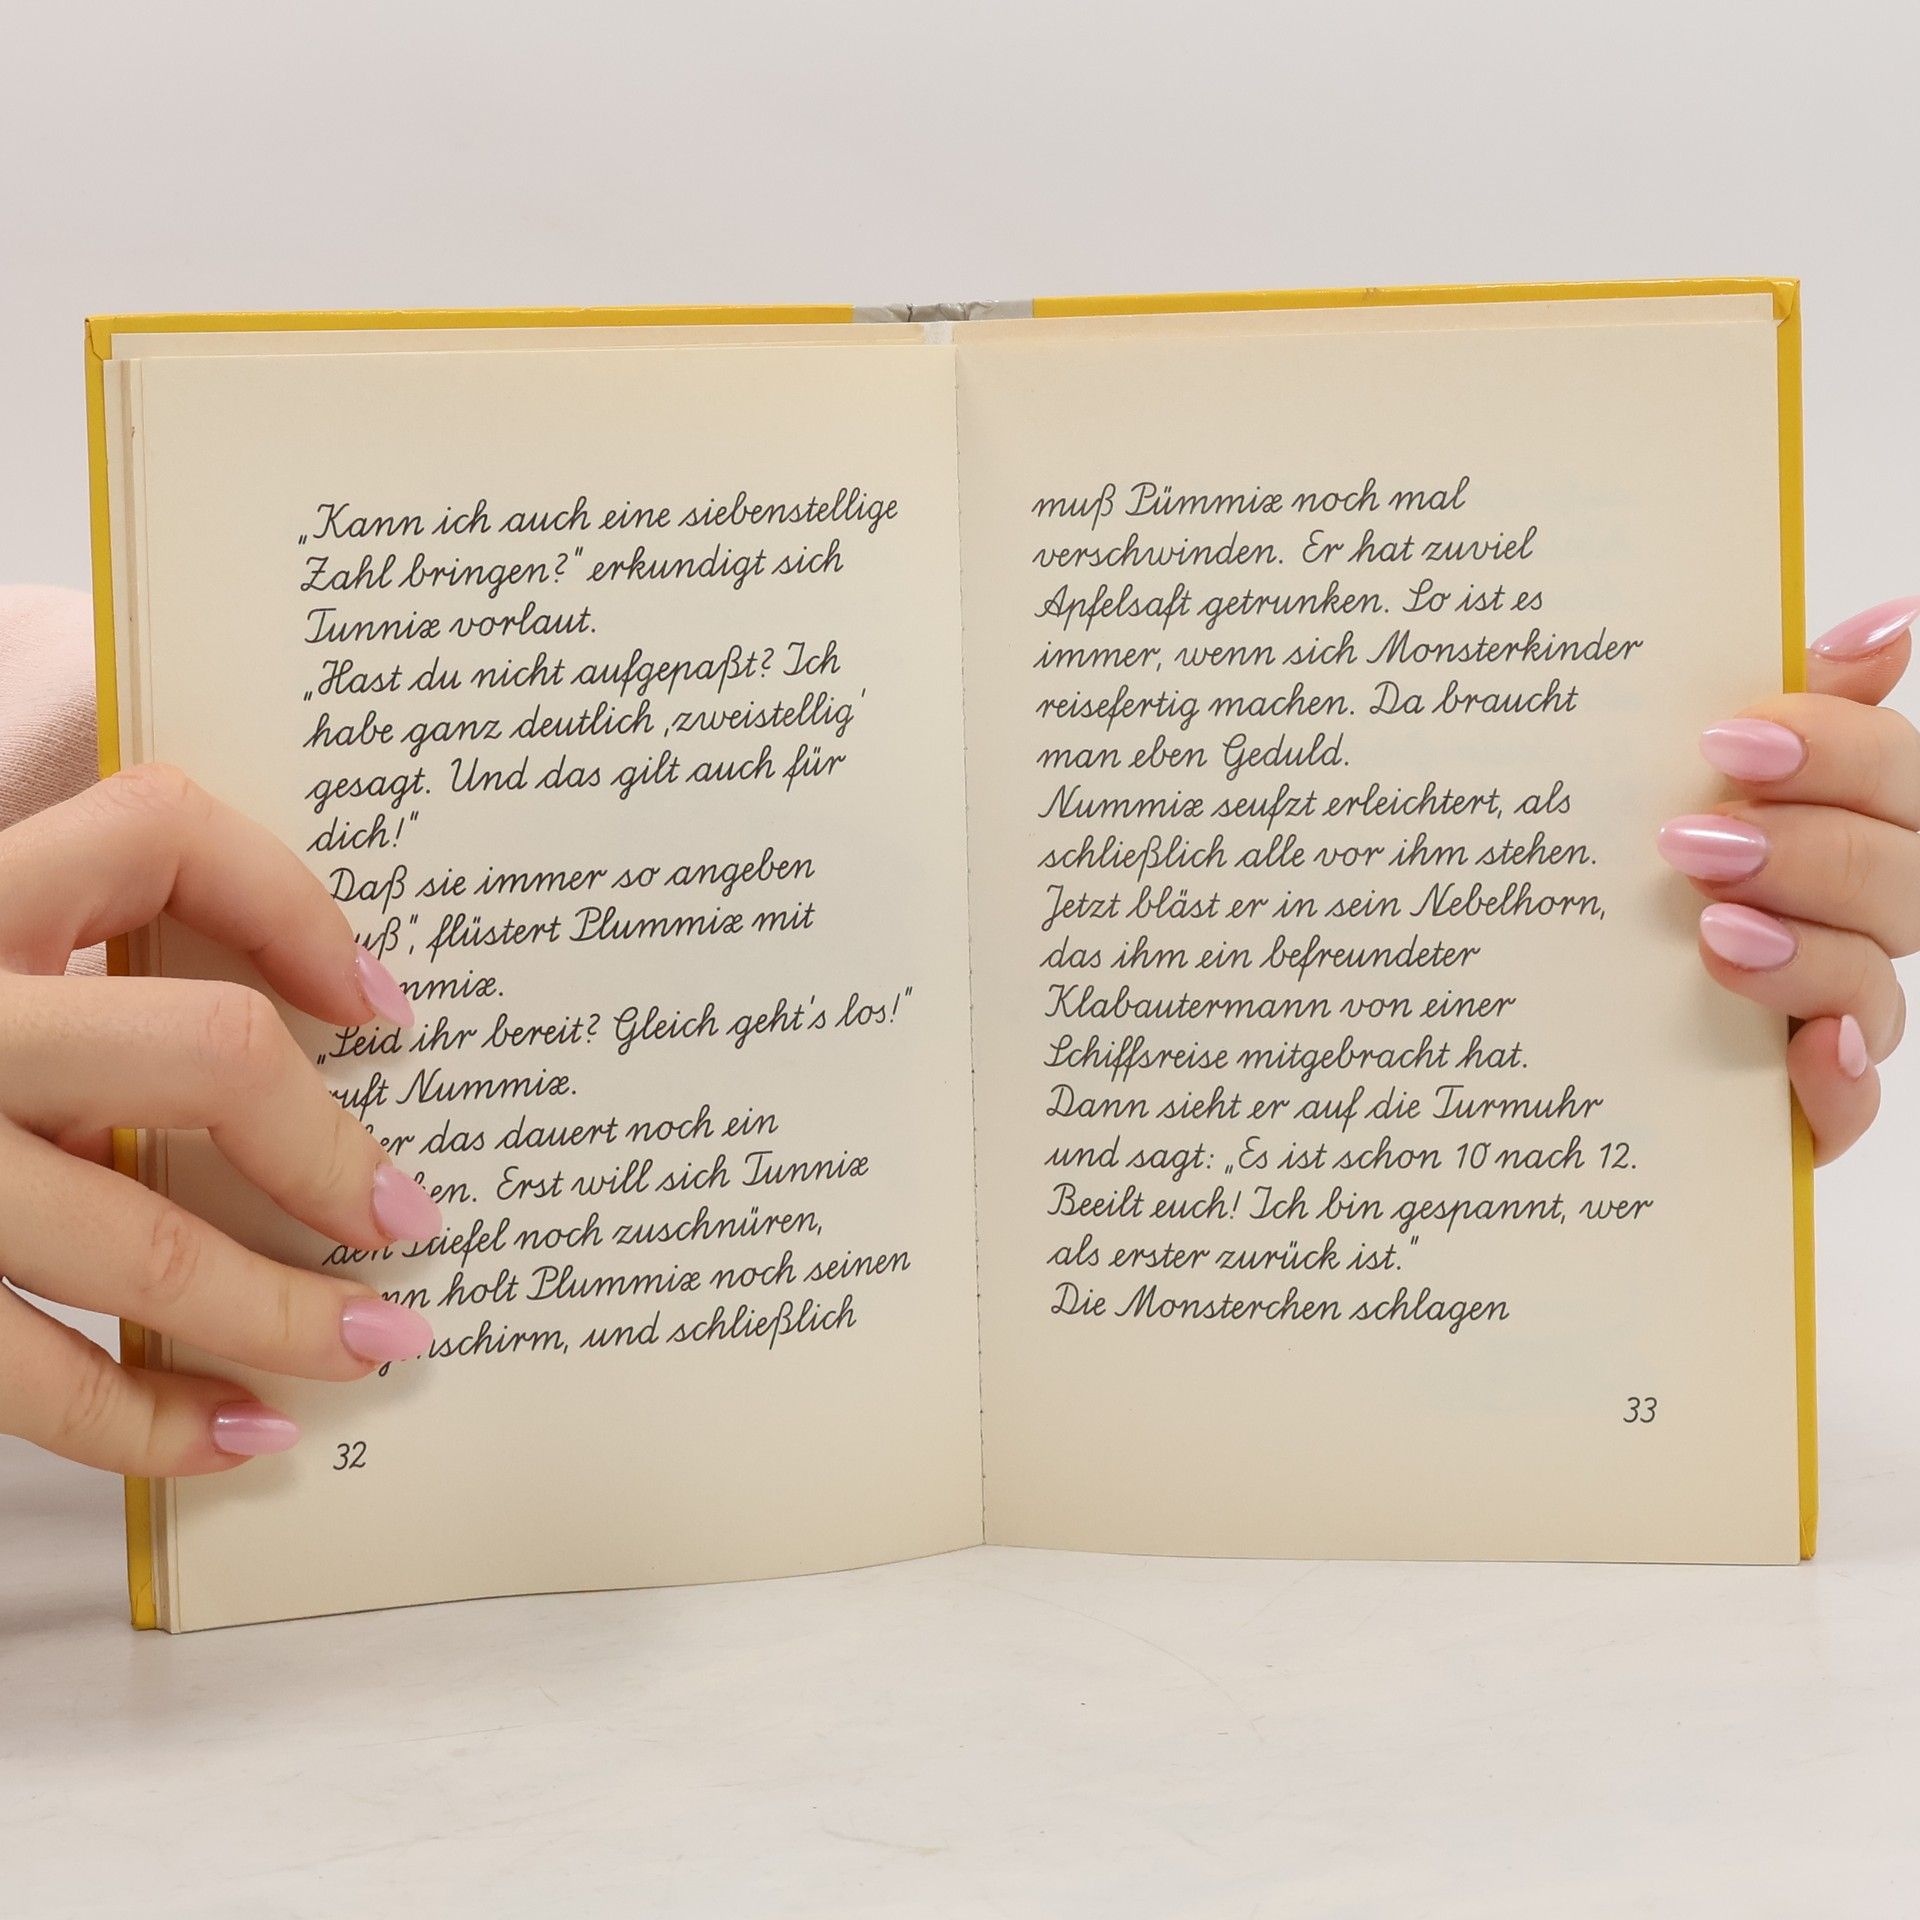 „Kann ich auch eine siebenstellige
Zahl bringen?" erkundigt sich
Tunnix vorlaut.
„Hast du nicht aufgepaßt? Ich
habe ganz deutlich ‚zweistellig'
gesagt. Und das gilt auch für
dich!"
Daß sie immer so angeben
flüstert Plummix mit
„Seid ihr bereit? Gleich geht's los!"
ruft Nummix.
das dauert noch ein
Erst will sich Tunnix
den Stiefel noch zuschnüren,
holt Plummix noch seinen
und schließlich
32
muß Pümmix noch mal
verschwinden. Er hat zuviel
Apfelsaft getrunken. So ist es
immer, wenn sich Monsterkinder
reisefertig machen. Da braucht
man eben Geduld.
Nummix seufzt erleichtert, als
schließlich alle vor ihm stehen.
Jetzt bläst er in sein Nebelhorn,
das ihm ein befreundeter
Klabautermann von einer
Schiffsreise mitgebracht hat.
Dann sieht er auf die Turmuhr
und sagt: „Es ist schon 10 nach 12.
Beeilt euch! Ich bin gespannt, wer
als erster zurück ist."
Die Monsterchen schlagen
33